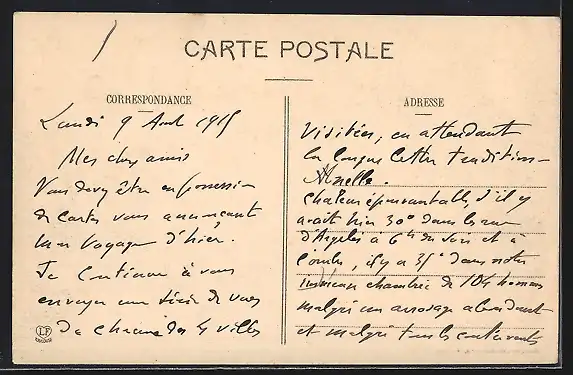 CARTE POSTALE
CORRESPONDANCE
Lundi 9 Aout 1915
Mes chers amis
Vous devez être en possession
de cartes vous annonçant
mon voyage d'hier.
Je continue à vous
envoyer une série de vues
de chacune des 4 villes
LF
ADRESSE
visitées, en attendant
la longue lettre tradition-
nelle.
Chaleur épouvantable, s'il y
avait hier 30° dans les rues
d'Argelès à 6h du soir et à
l'ombre, il y a 35° dans notre
immense chambrée de 104 hommes
malgré un arrosage abondant
et malgré tous les courants